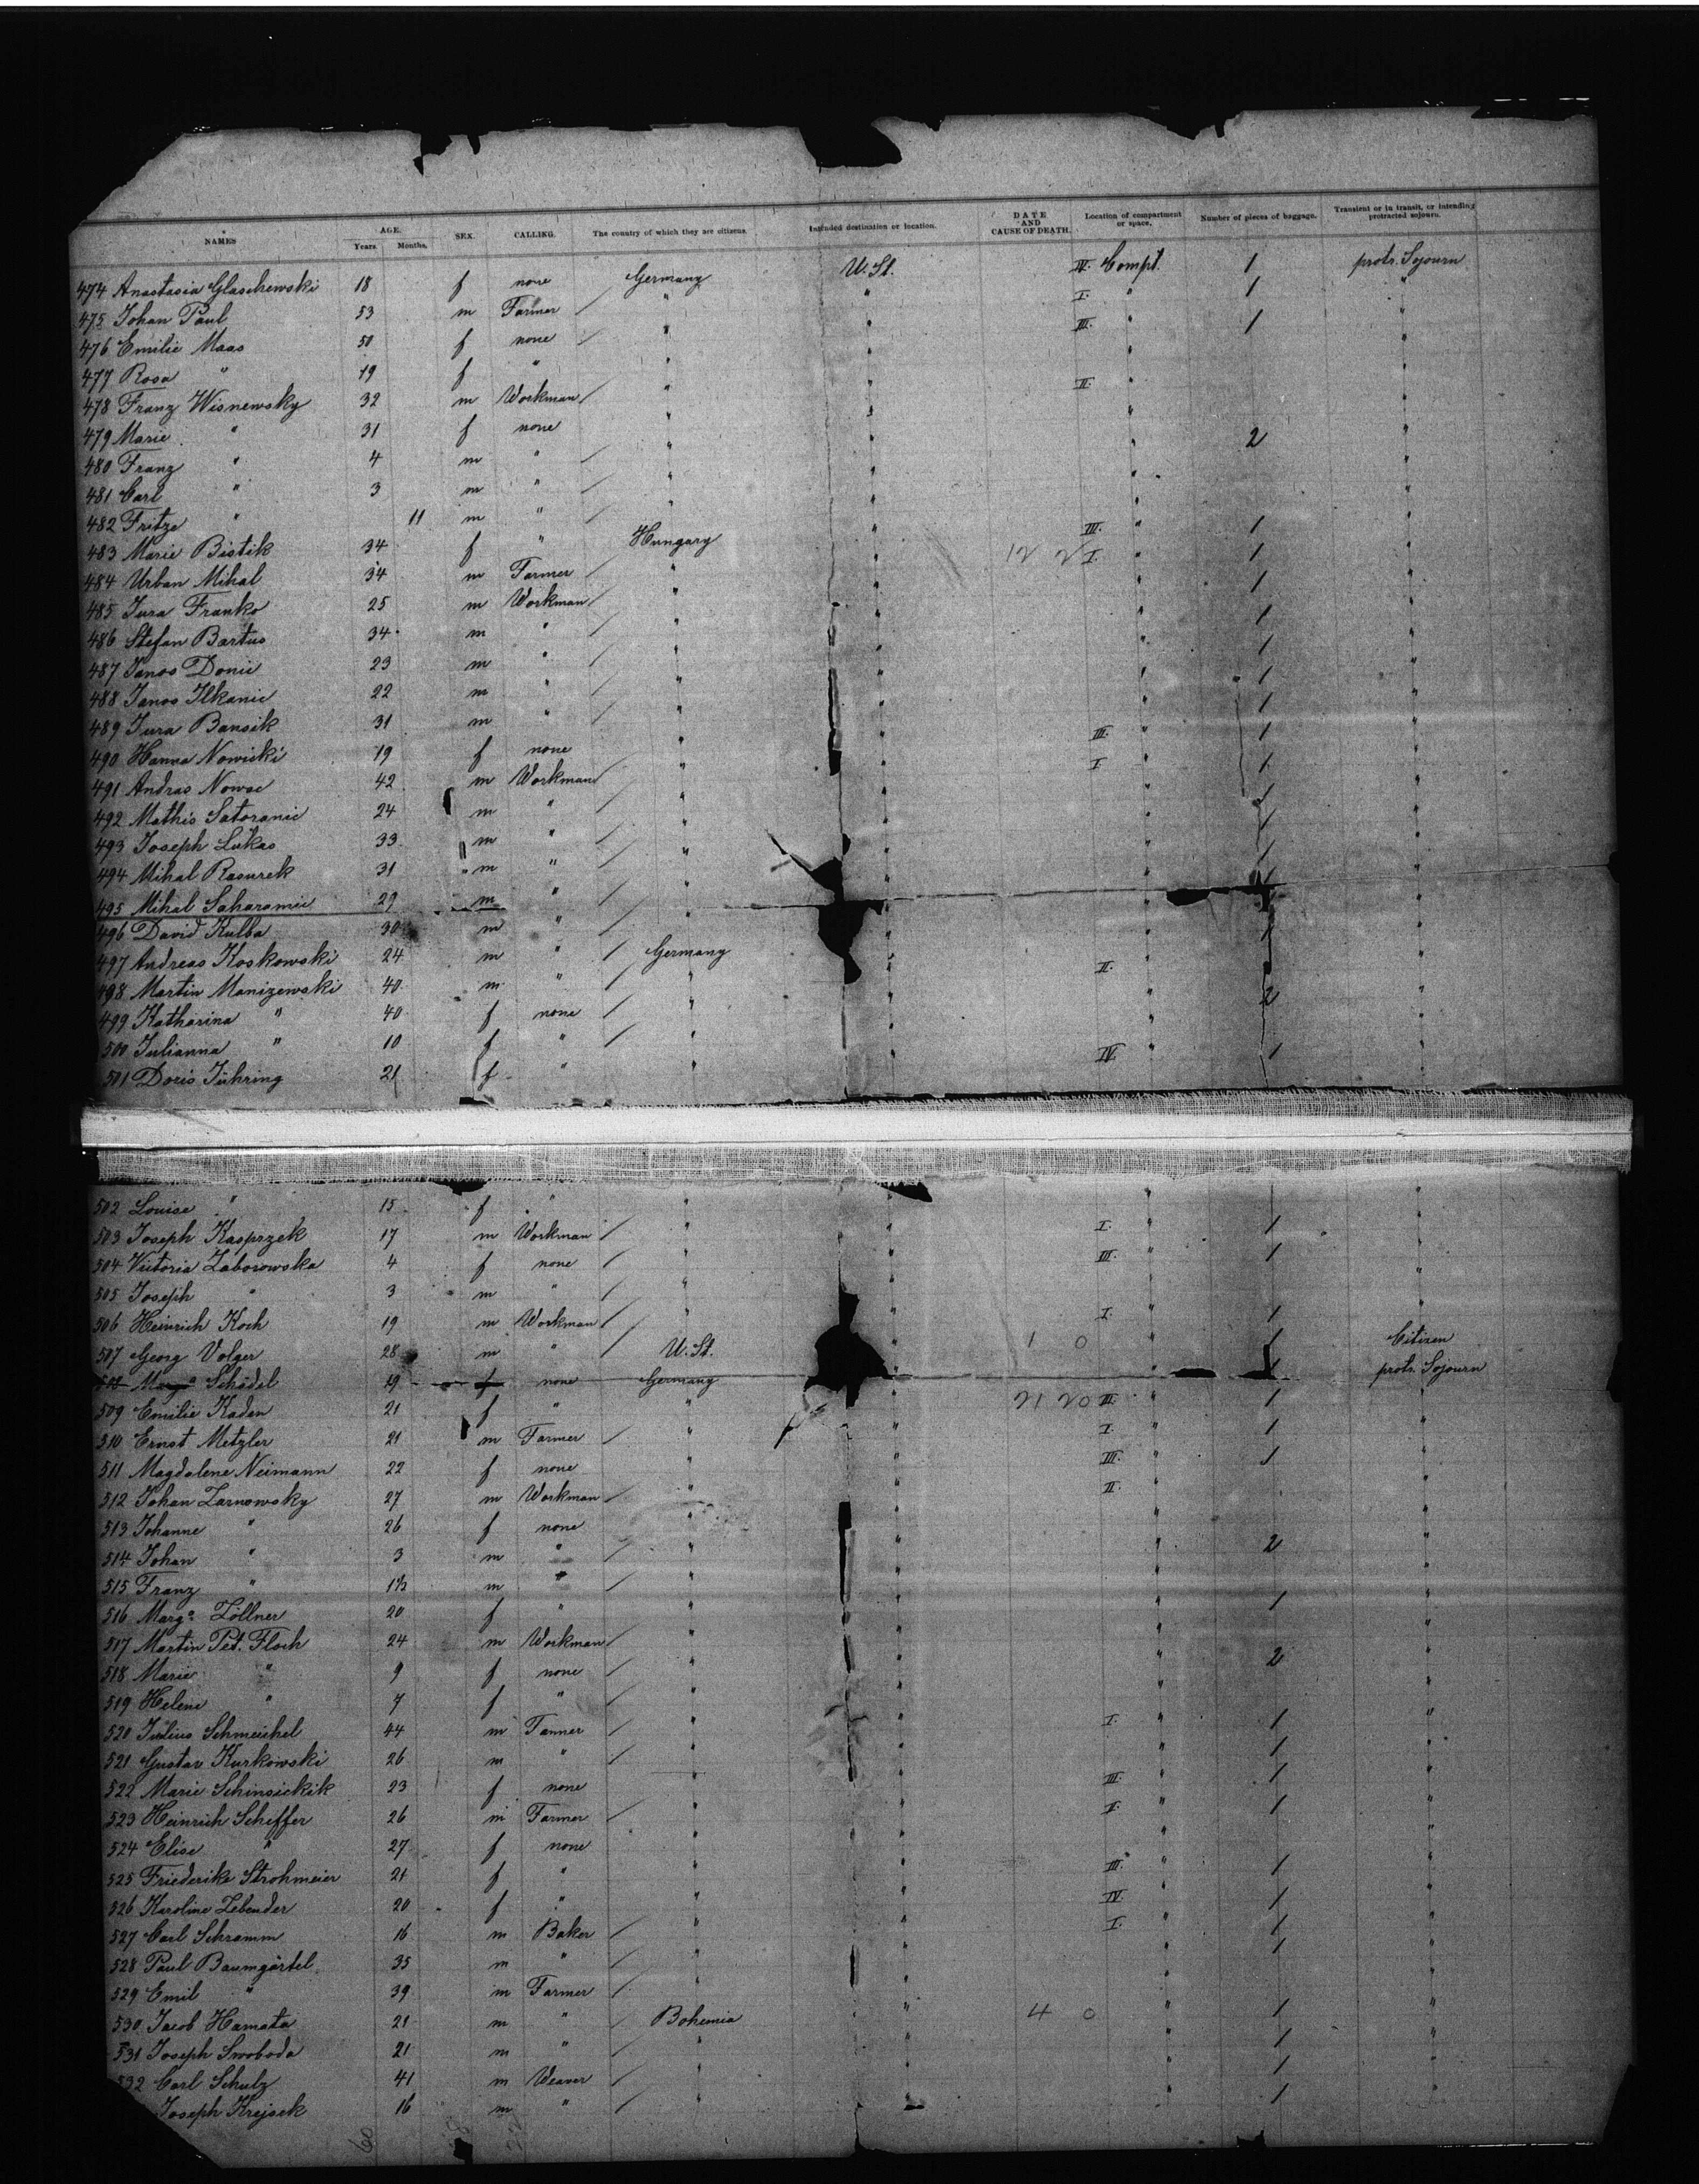 NAMES AGE. Years. Months. SEX. CALLING. The country of which they are citizens. Intended destination or location. DATE AND CAUSE OF DEATH. Location of compartment or space. Number of pieces of baggage. Transient or in transit, or intending protracted sojourn.
474 Anastasia Glaschewski 18 f none Germany U. St. IV. Compt. 1 protr. Sojourn
475 Johan Paul 53 m Farmer / " " I. " 1 "
476 Emilie Maas 50 f none / " " III. " 1 "
477 Rosa " 19 f " " " " "
478 Franz Wisnewsky 32 m Workman / " " II. " "
479 Marie " 31 f none " " " "
480 Franz " 4 m " / " " " 2 "
481 Carl " 3 m " / " " " "
482 Fritze " 11 m " / " " " "
483 Marie Bistik 34 f " Hungary " III. " 1 "
484 Urban Mihal 34 m Farmer / " " 12 2 I. " 1 "
485 Jura Franko 25 m Workman / " " " 1 "
486 Stefan Bartus 34 m " / " " " 1 "
487 Janos Donic 23 m " / " " " 1 "
488 Janos Ilkanic 22 m " / " " " 1 "
489 Jura Bansik 31 m " / " " " 1 "
490 Hanna Nowicki 19 f none " " III. " 1 "
491 Andras Nowac 42 m Workman / " " I. " 1 "
492 Mathis Satoranic 24 m " / " " " 1 "
493 Joseph Lukas 33 m " / " " " 1 "
494 Mihal Rasurek 31 m " / " " " 1 "
495 Mihal Saharamic 29 m " / " " 1 "
496 David Kulba 30 m " / " " " 1 "
497 Andreas Koskowski 24 m " / Germany " " 1 "
498 Martin Manizewski 40 m " / " " II. " "
499 Katharina " 40 f none / " " " 2 "
500 Julianna " 10 f " / " " " "
501 Doris Jühring 21 f " " " IV. " 1 "
502 Louise " 15 f " " " " "
503 Joseph Kasprzek 17 m Workman / " " I. " 1 "
504 Victoria Zaborowska 4 f none / " " III. " 1 "
505 Joseph " 3 m " / " " "
506 Heinrich Koch 19 m Workman / " " I. " 1 "
507 Georg Volger 28 m " / U. St. 1 0 " 1 Citizen
Marg. Schödel 19 f none Germany " " 1 protr. Sojourn
509 Emilie Kaden 21 f " " " 21 20 III. " 1 "
510 Ernst Metzler 21 m Farmer / " " I. " 1 "
511 Magdalene Neimann 22 f none " " III. " 1 "
512 Johan Zarnowsky 27 m Workman / " " II. " "
513 Johanne " 26 f none " " " "
514 Johan " 3 m " / " " " 2 "
515 Franz " 1½ m " / " " " "
516 Marg. Zöllner 20 f " " " " 1 "
517 Martin Pet. Floch 24 m Workman / " " " "
518 Marie " 9 f none / " " " 2 "
519 Helene " 7 f " / " " " "
520 Julius Schmeichel 44 m Tanner / " " I. " 1 "
521 Gustav Kurkowski 26 m " / " " " 1 "
522 Marie Schinsickik 23 f none " " III. " 1 "
523 Heinrich Scheffer 26 m Farmer / " " II. " 1 "
524 Elise " 27 f none " " " "
525 Friederike Strohmeier 21 f " " " III. " 1 "
526 Karoline Zebender 20 f " " " IV. " 1 "
527 Carl Schramm 16 m Baker / " " I. " 1 "
528 Paul Baumgärtel 35 m " / " " " 1 "
529 Emil " 39 m Farmer / " " " "
530 Jacob Hamata 21 m " / Bohemia " 4 0 " 1 "
531 Joseph Swoboda 21 m " / " " " 1 "
532 Carl Schulz 41 m Weaver / " " " 1 "
Joseph Krejsek 16 m " / " " " 1 "
60